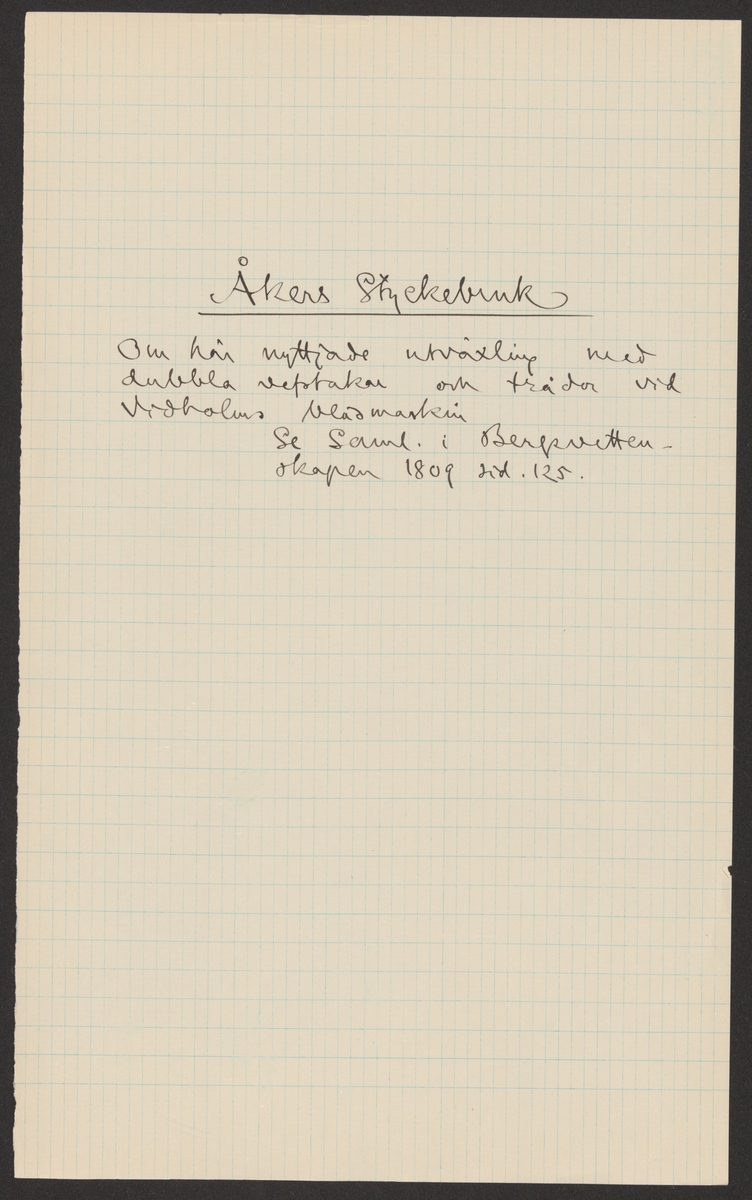 Åkers Styckebruk
Om här nyttjade utväxling med
dubbla vefstakar och trådor vid
Vidholms blåsmaskin
Se Saml. i Bergsvetten-
skapen 1809 sid. 125.